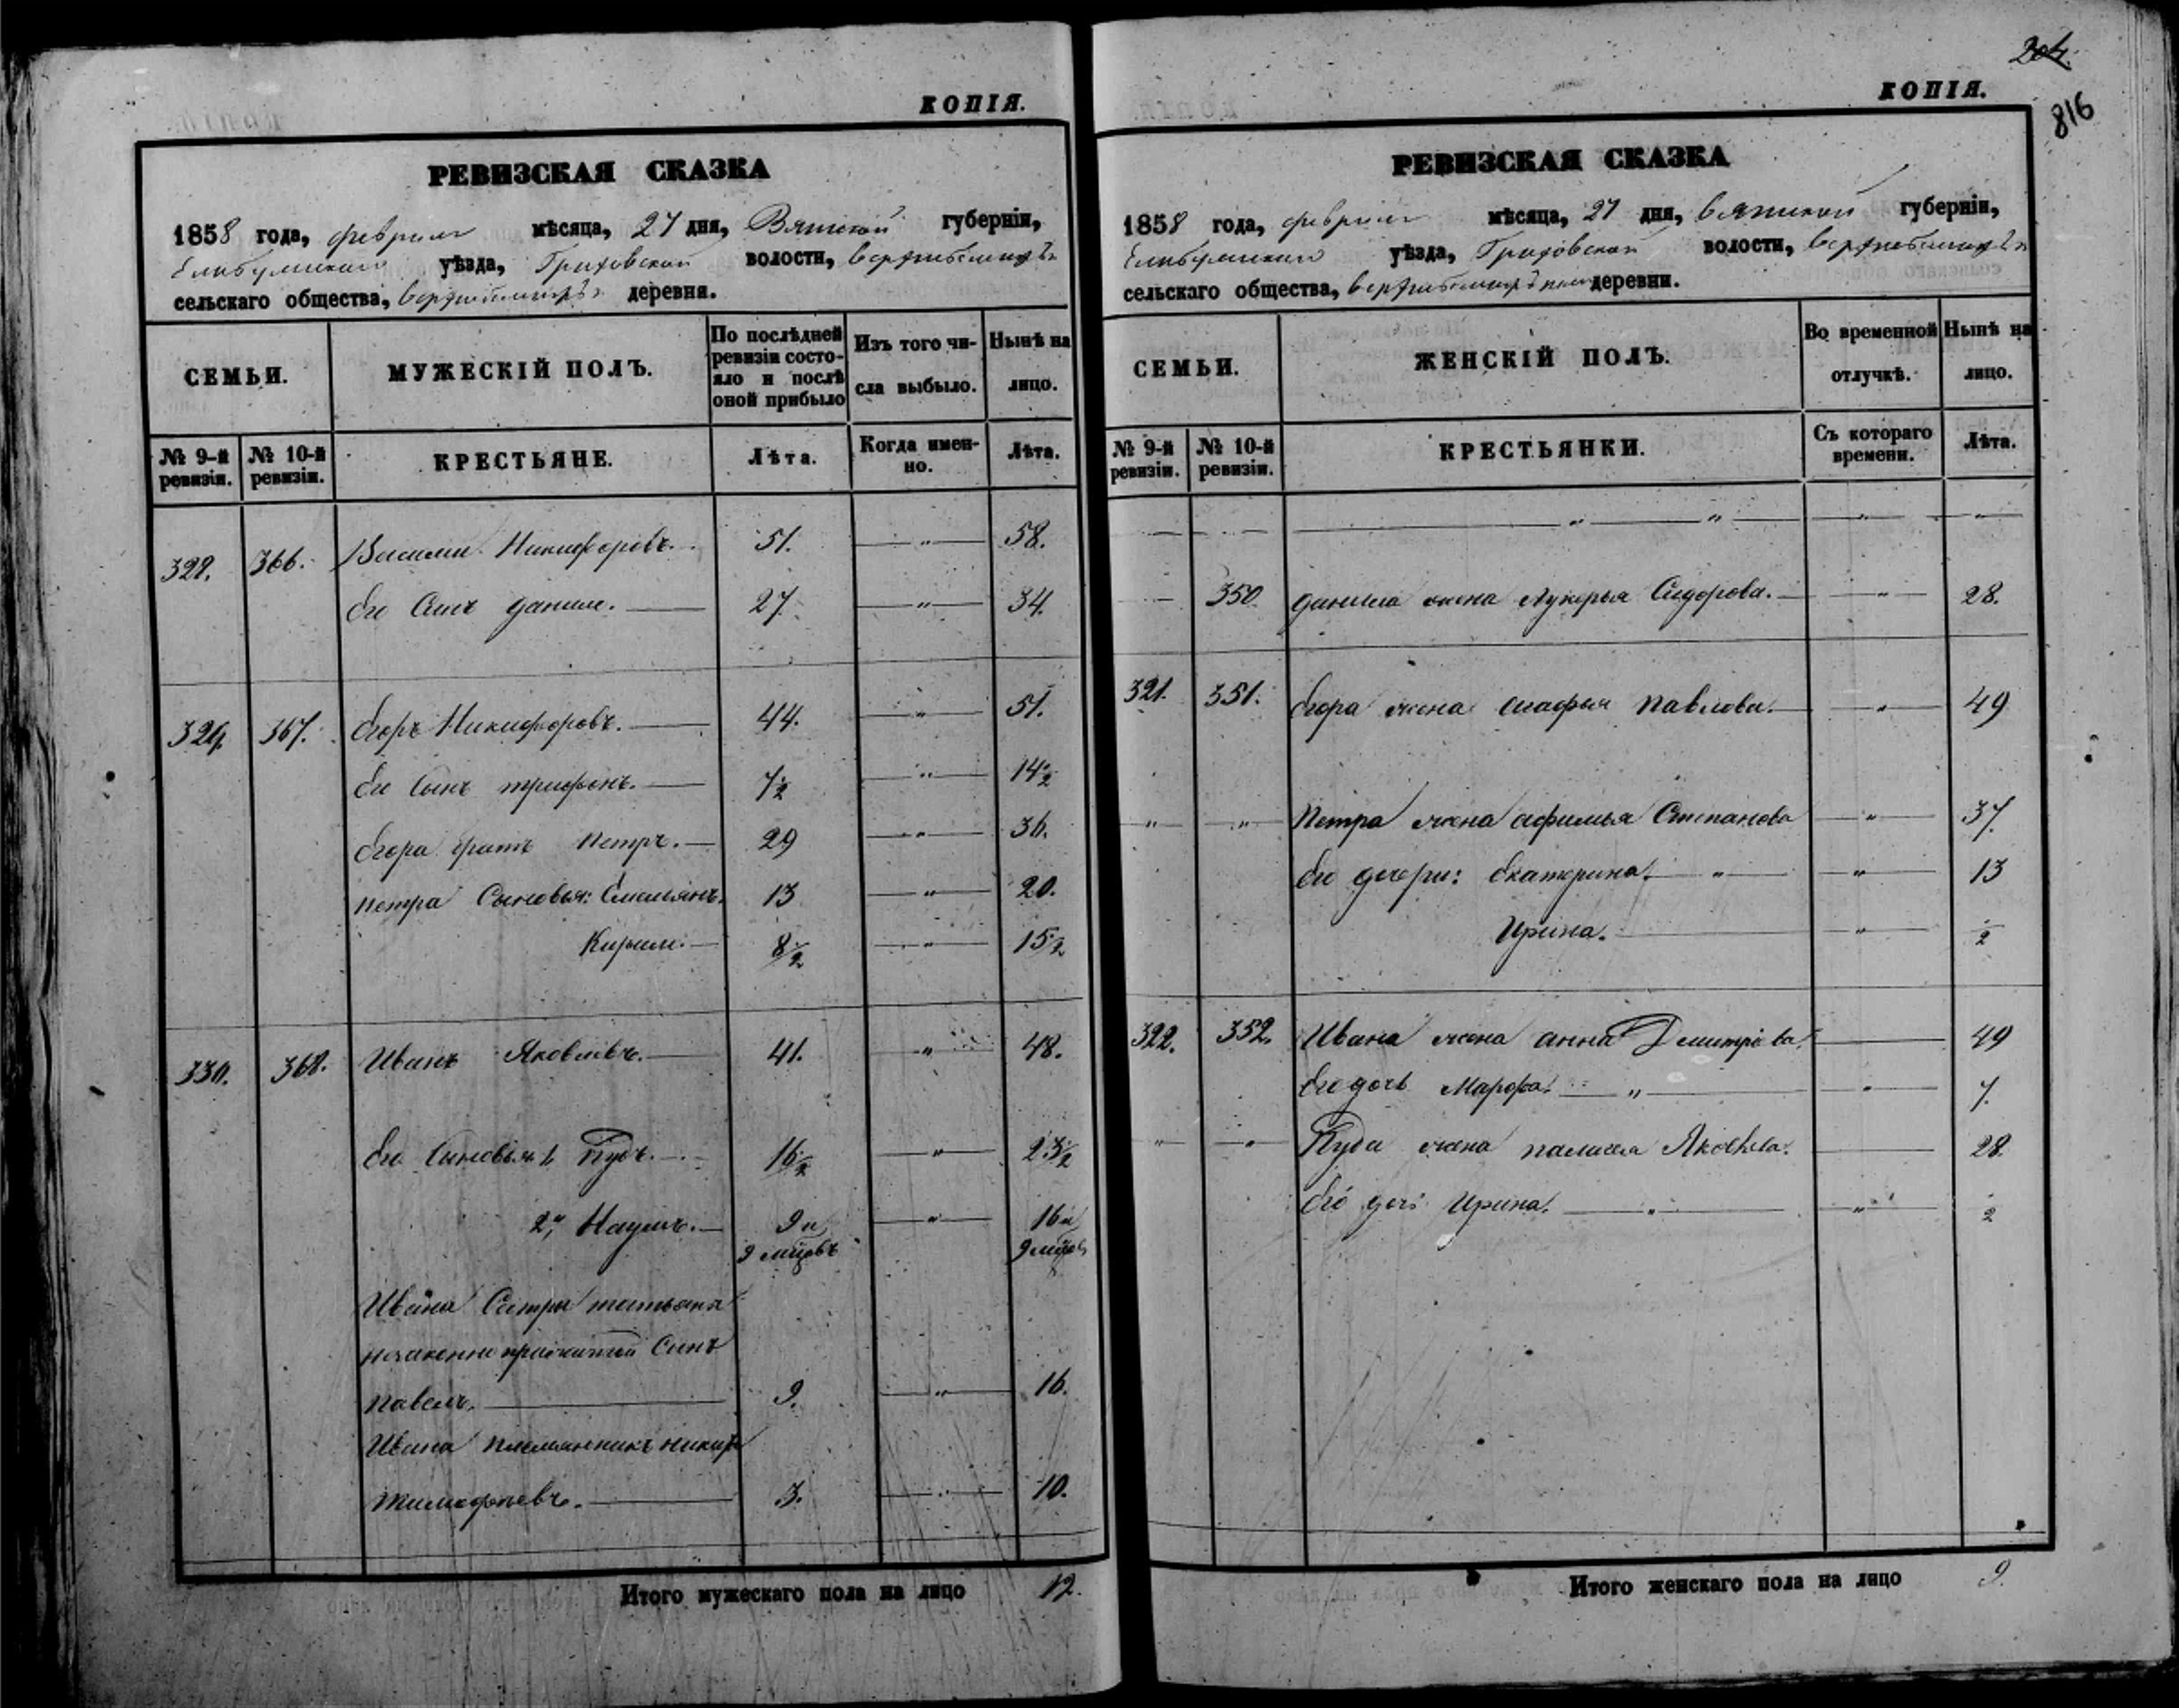 КОПІЯ.
РЕВИЗСКАЯ СКАЗКА
1858 года, февраля мѣсяца, 27 дня, Вятской губерніи,
Елабужскаго уѣзда, волости,
сельскаго общества, деревни.
СЕМЬИ.
МУЖЕСКІЙ ПОЛЪ.
По послѣдней ревизіи состо-
яло и послѣ оной прибыло
Изъ того чи-
сла выбыло.
Нынѣ на
лицо.
№ 9-й ревизіи.
№ 10-й ревизіи.
КРЕСТЬЯНЕ.
Лѣта.
Когда имен-
но.
Лѣта.
366. Василий Никифоровъ. 51. — „ — 58.
Его Сынъ Данило. 27. — „ — 34.
367. Егоръ Никифоровъ. 44. — „ — 51.
Его Сынъ трифонъ. 7½ — „ — 14½
Егора братъ Петръ. 29 — „ — 36.
петра Сыновья: Емельянъ. 13 — „ — 20.
Кирилъ. 8½ — „ — 15½
330. 368. Иванъ Яковлевъ. 41. — „ — 48.
Его Сыновья 1, Пудъ. 16½ — „ — 23½
2, Наумъ. 9 и — „ — 16 и
9 мцовъ 9 мцовъ
Ивана Сестры татьяны
незаконно прижитой Сынъ
павелъ. 9. — „ — 16.
Ивана племянникъ
тимофеевъ. 3. — „ — 10.
Итого мужескаго пола на лицо 12.
204.
816
КОПІЯ.
РЕВИЗСКАЯ СКАЗКА
1858 года, февраля мѣсяца, 27 дня, вятской губерніи,
Елабужскаго уѣзда, волости,
сельскаго общества, деревни.
СЕМЬИ.
ЖЕНСКІЙ ПОЛЪ.
Во временной
отлучкѣ.
Нынѣ на
лицо.
№ 9-й ревизіи.
№ 10-й ревизіи.
КРЕСТЬЯНКИ.
Съ котораго
времени.
Лѣта.
350. данила жена Лукерья Сидорова. — „ — 28.
321. 351. Егора жена агафья павлова. — „ — 49
„ „ Петра жена афимья Степанова — „ — 37.
Его дочери: Екатерина. — „ — 13
Ирина. — „ — ½
322. 352. Ивана жена анна Дмитріева. — 49
Его дочь Марфа. — „ — 7.
„ „ Пуда жена Яковлева. — 28.
Его дочь Ирина. — „ — ½
Итого женскаго пола на лицо 9.